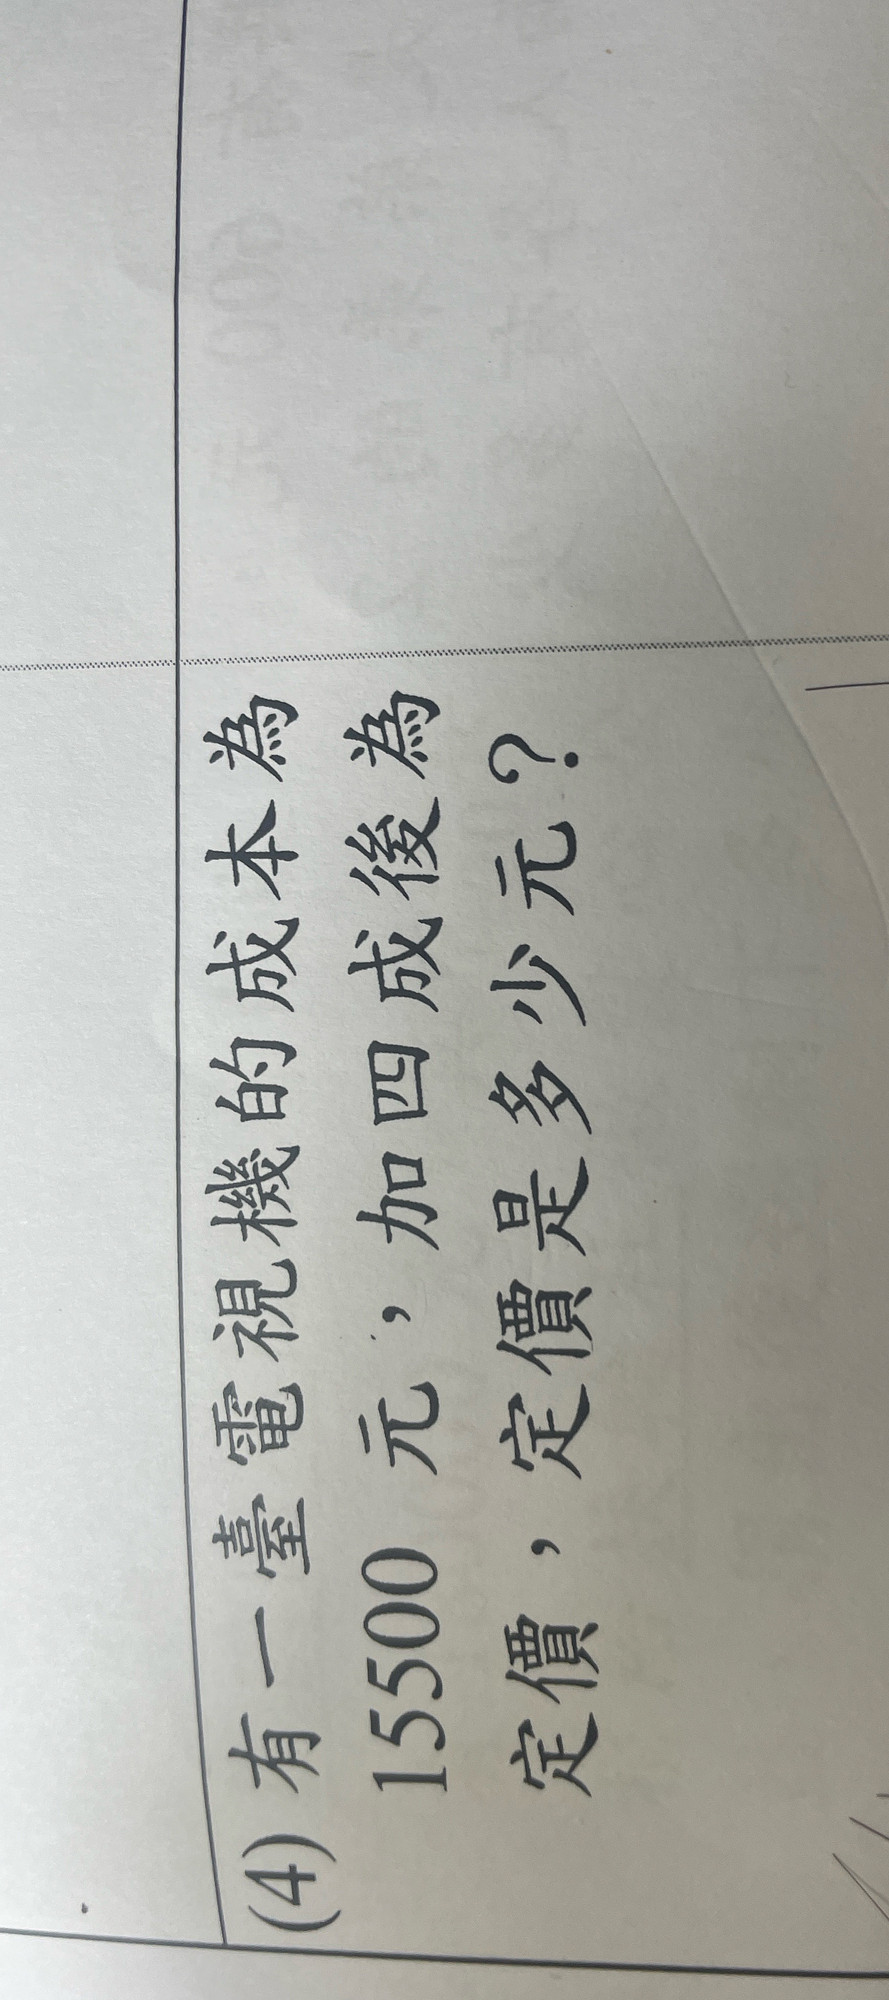 (4) 有一臺電視機的成本為
15500 元，加四成後為
定價，定價是多少元？